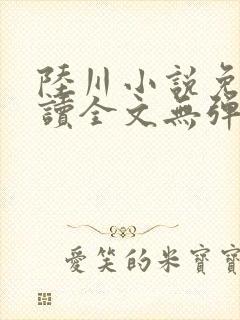 陸川小說免
讀全文無彈
愛笑的米寶寶